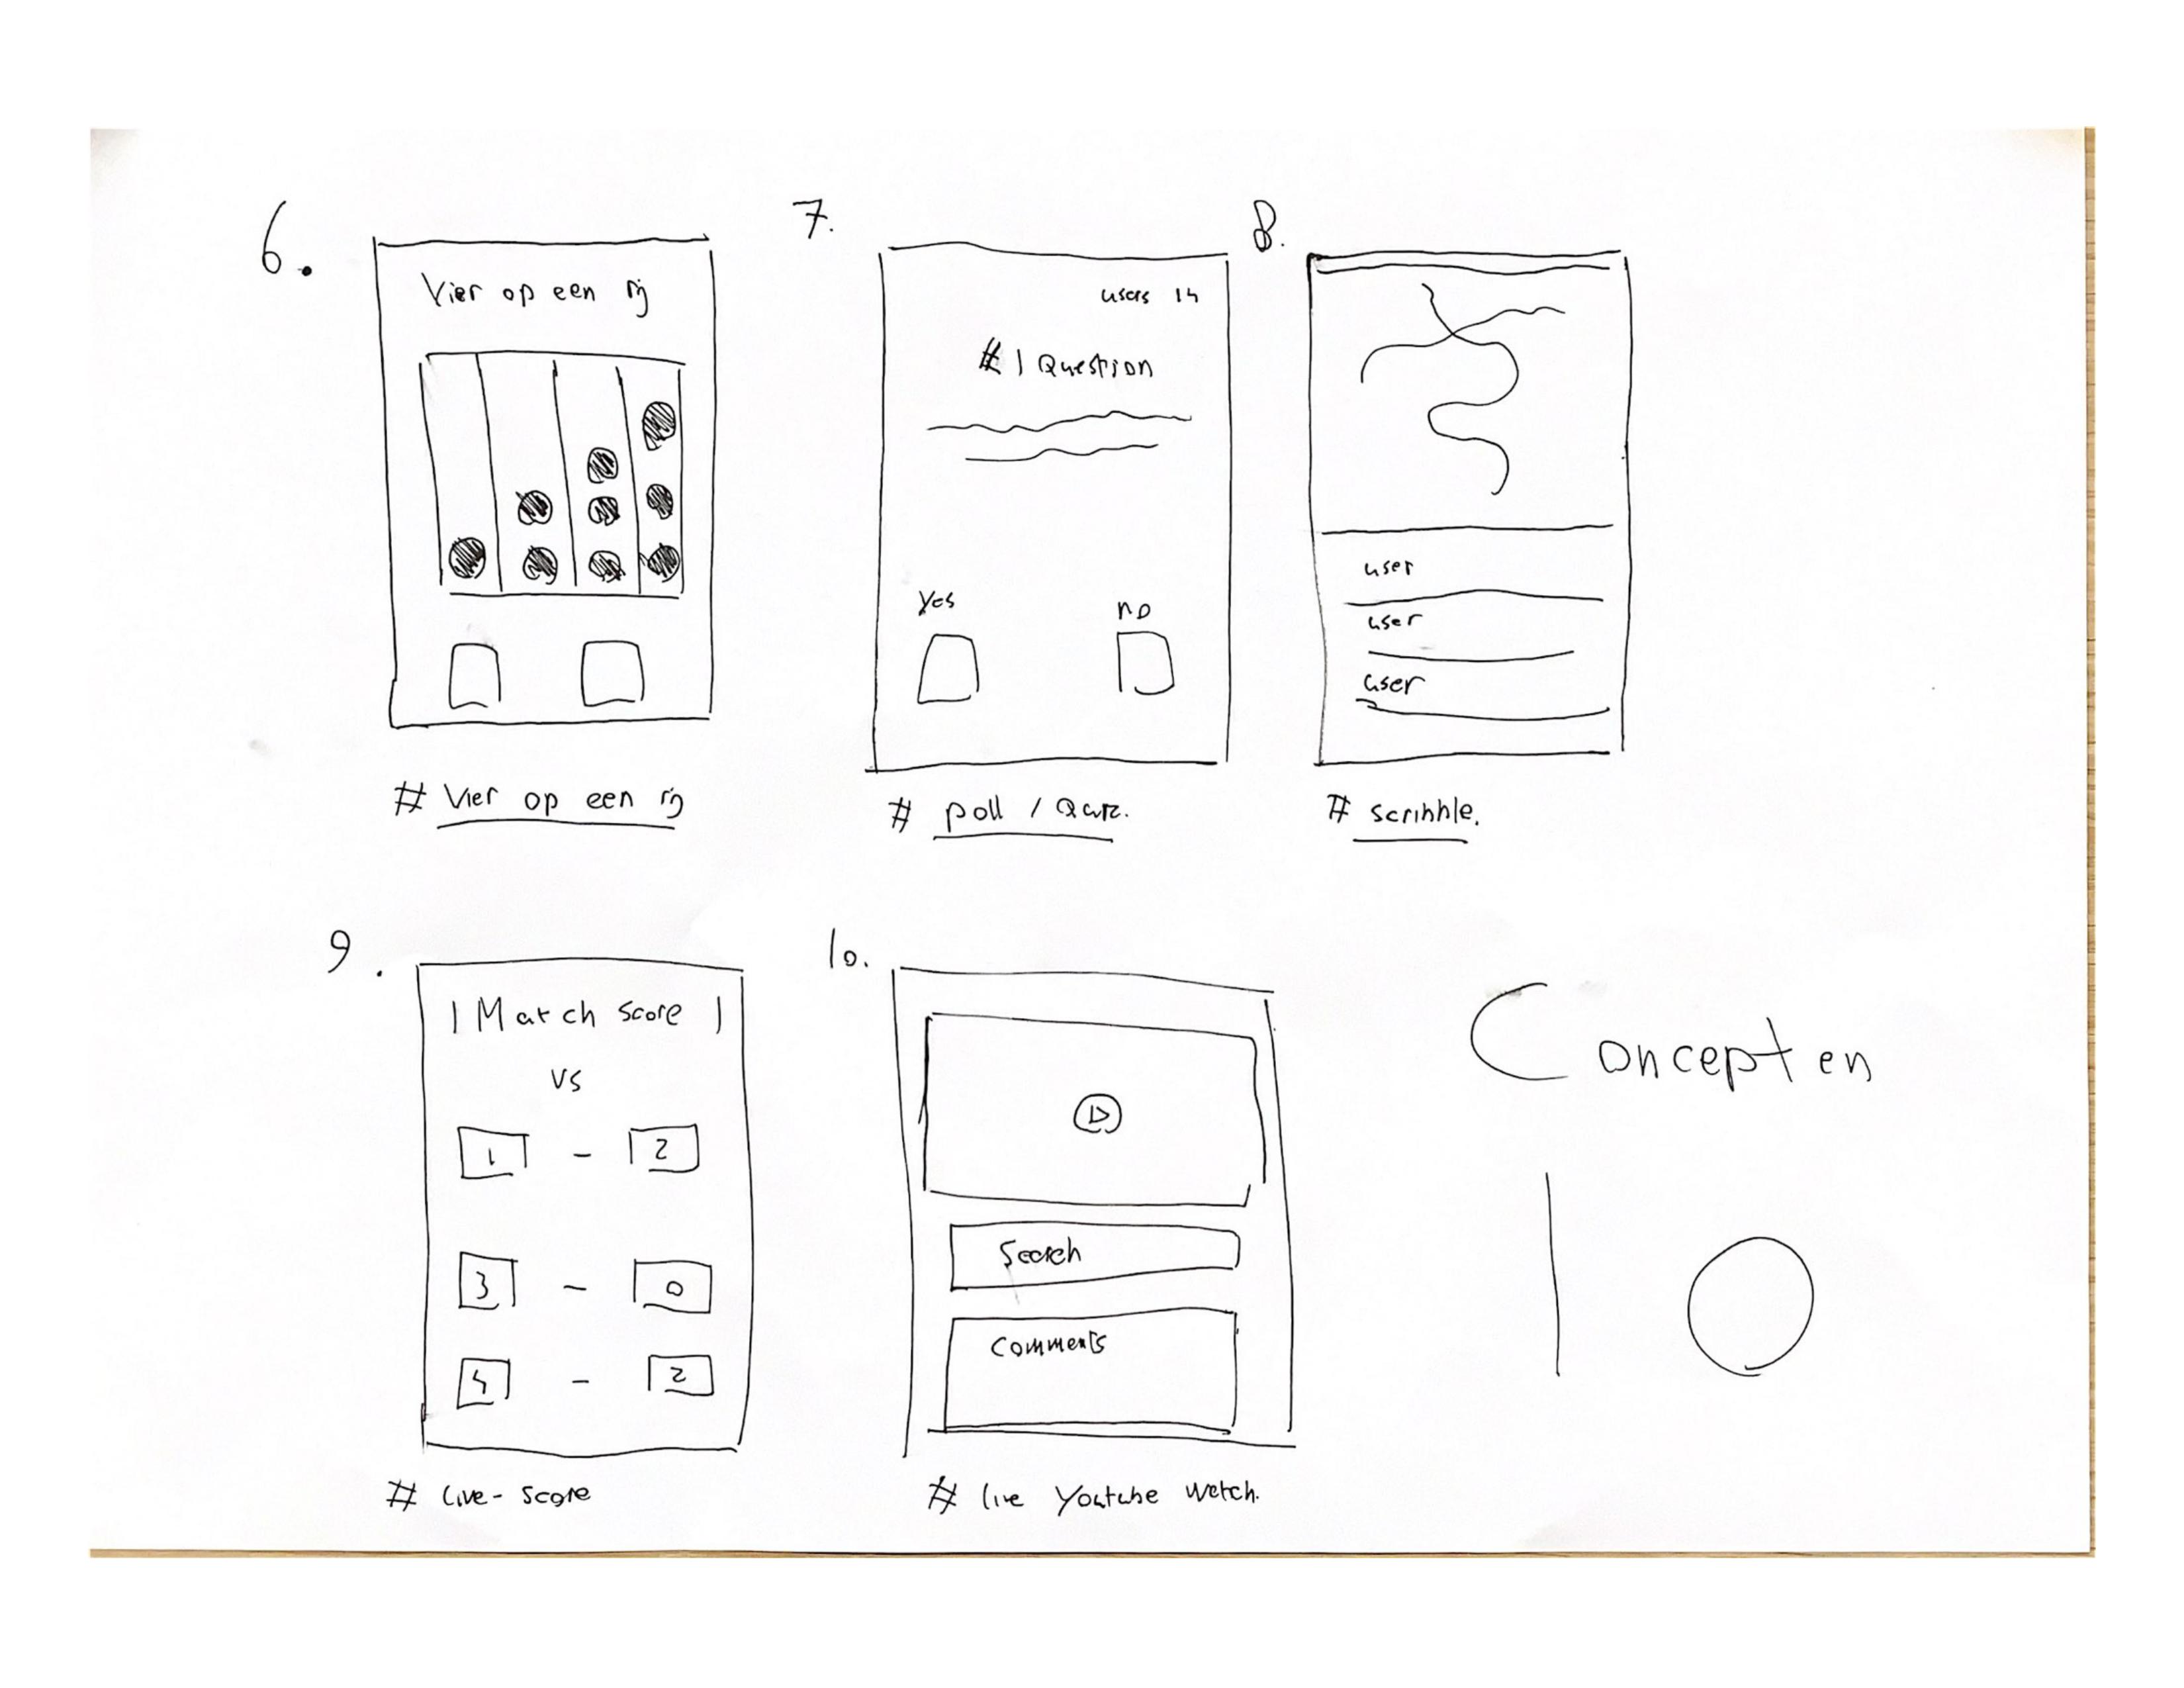 6.
Vier op een rij
# Vier op een rij
7.
users 14
# 1 Question
yes
no
# poll / Quiz.
8.
user
user
user
# scribble.
9.
| Match score |
VS
1 - 2
3 - 0
4 - 2
# live-score
10.
Search
Comments
# live Youtube watch.
Concepten
10